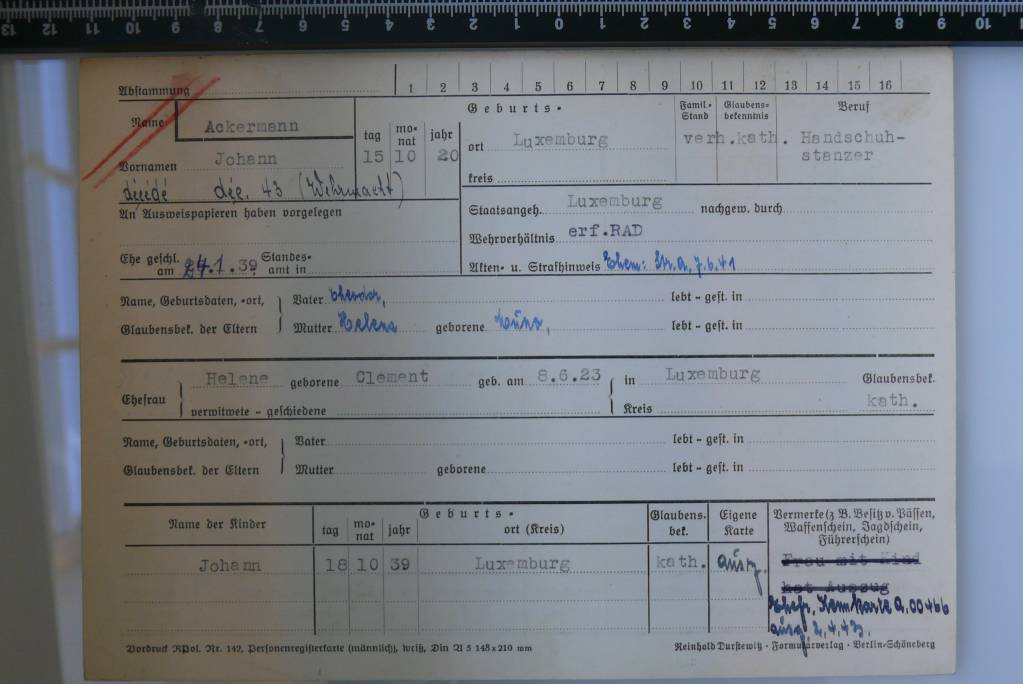 13 12 11 10 9 8 7 6 5 4 3 2 1 0 1 2 3 4 5 6 7 8 9 10 11
Abstammung 1 2 3 4 5 6 7 8 9 10 11 12 13 14 15 16
Name Ackermann
Vornamen Johann
décédé déc. 43 (Wehrmacht)
tag mo-nat jahr
15 10 20
Geburts-
ort Luxemburg
kreis
Famil.-Stand Glaubens-bekenntnis Beruf
verh. kath. Handschuh-
stanzer
An Ausweispapieren haben vorgelegen
Staatsangeh. Luxemburg nachgew. durch
Wehrverhältnis erf.RAD
Ehe geschl. am 24.1.39 Standes-amt in
Akten- u. Strafhinweis Ehem: Str.A, 7.6.41
Name, Geburtsdaten, -ort, Vater lebt - gest. in
Glaubensbek. der Eltern Mutter Helena geborene lebt - gest. in
Ehefrau Helene geborene Clement geb. am 8.6.23 in Luxemburg Glaubensbek.
verwitwete - geschiedene Kreis kath.
Name, Geburtsdaten, -ort, Vater lebt - gest. in
Glaubensbek. der Eltern Mutter geborene lebt - gest. in
Name der Kinder tag mo-nat jahr Geburts- ort (Kreis) Glaubens-bek. Eigene Karte Vermerke (z. B. Besitz v. Pässen,
Waffenschein, Jagdschein,
Führerschein)
Johann 18 10 39 Luxemburg kath. ausg. Frau mit Kind
hat Auszug
Ehefr. Kennkarte A.00466
ausg. 2.4.43.
Vordruck RPol. Nr. 142, Personenregisterkarte (männlich), weiß, Din A 5 148 x 210 mm Reinhold Durstewitz · Formularverlag · Berlin-Schöneberg